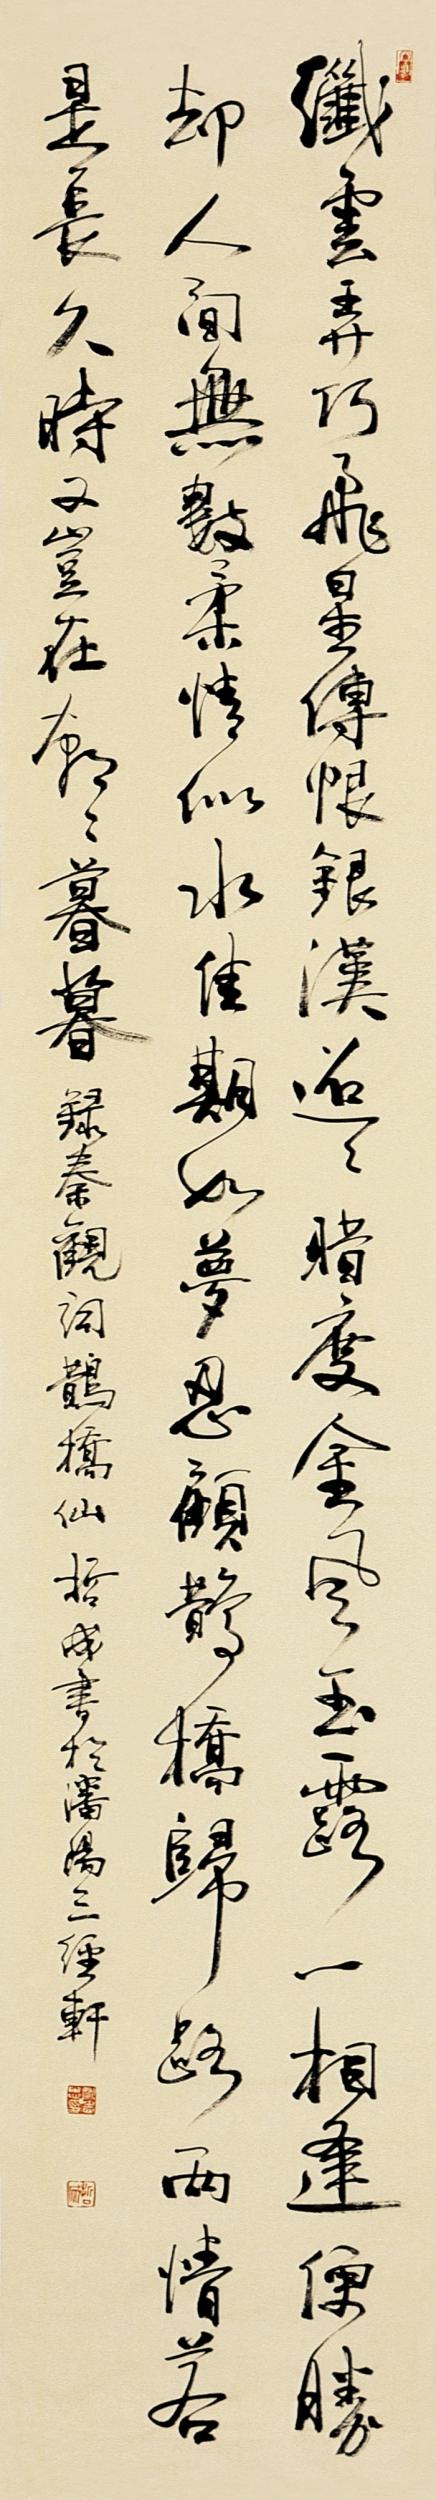 纖雲弄巧飛星傳恨銀漢迢々暗度金風玉露一相逢便勝
却人間無數柔情似水佳期如夢忍顧鵲橋歸路兩情若
是長久時又豈在朝々暮暮 録秦觀詞鵲橋仙 哲成書於瀋陽三經軒